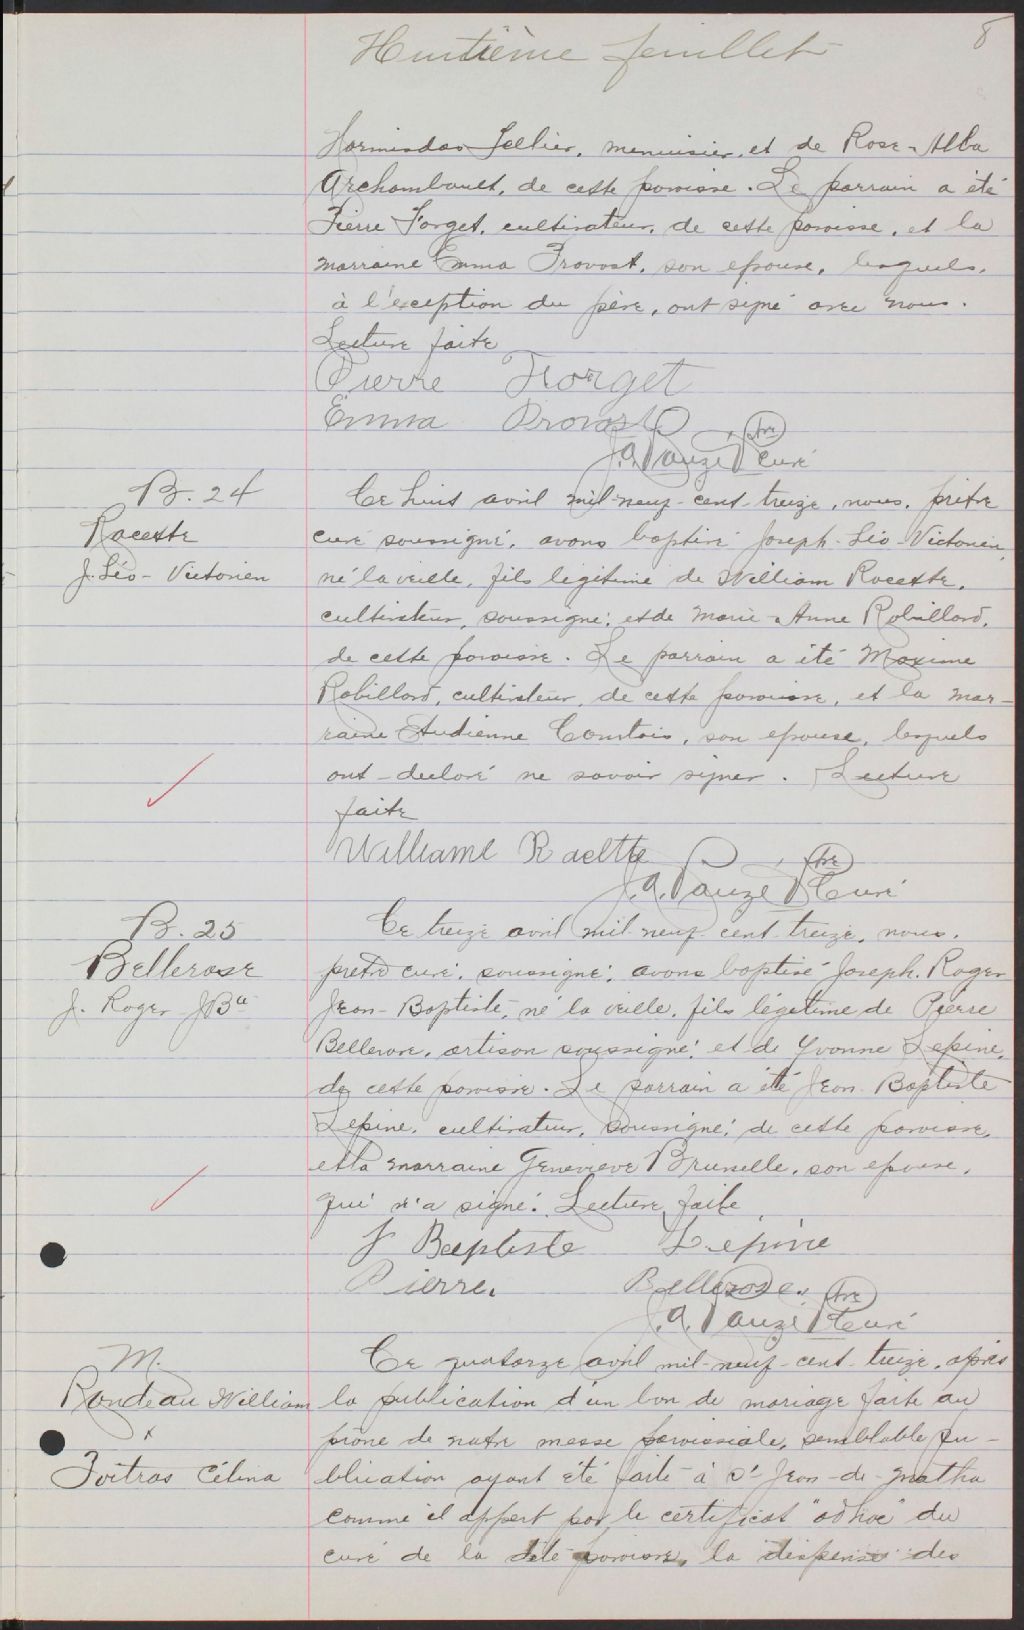 Huitième feuillet
8
Hormisdas Tellier, menuisier, et de Rose-Alba
Archambault, de cette paroisse. Le parrain a été
Pierre Forget, cultivateur, de cette paroisse, et la
marraine Emma Provost, son épouse, lesquels,
à l'exception du père, ont signé avec nous.
Lecture faite
Pierre Forget
Emma Provost
J. A. Pauzé Ptre Curé
B. 24
Racette
J. Léo-Victorien
Ce huit avril mil-neuf-cent-treize, nous, prêtre
curé soussigné, avons baptisé Joseph-Léo-Victorien,
né la veille, fils légitime de William Racette,
cultivateur, soussigné; et de Marie-Anne Robillard,
de cette paroisse. Le parrain a été Maxime
Robillard, cultivateur, de cette paroisse, et la mar-
raine Audienne Comtois, son épouse, lesquels
ont déclaré ne savoir signer. Lecture
faite
Williame Racltte
J. A. Pauzé Ptre Curé
B. 25
Bellerose
J. Roger JBte
Ce treize avril mil-neuf-cent-treize, nous,
prêtre curé, soussigné, avons baptisé Joseph-Roger
Jean-Baptiste, né la veille, fils légitime de Pierre
Bellerose, artisan soussigné; et de Yvonne Lépine,
de cette paroisse. Le parrain a été Jean-Baptiste
Lépine, cultivateur, soussigné, de cette paroisse,
et la marraine Geneviève Brunelle, son épouse,
qui n'a signé. Lecture faite
J Baptiste Lepine
Pierre Bellerose
J. A. Pauzé Ptre Curé
M.
Rondeau William
x
Poitras Célina
Ce quatorze avril mil-neuf-cent-treize, après
la publication d'un ban de mariage faite au
prône de notre messe paroissiale, semblable pu-
blication ayant été faite à St Jean-de-Matha
comme il appert par le certificat "ad hoc" du
curé de la dite paroisse, la dispense des